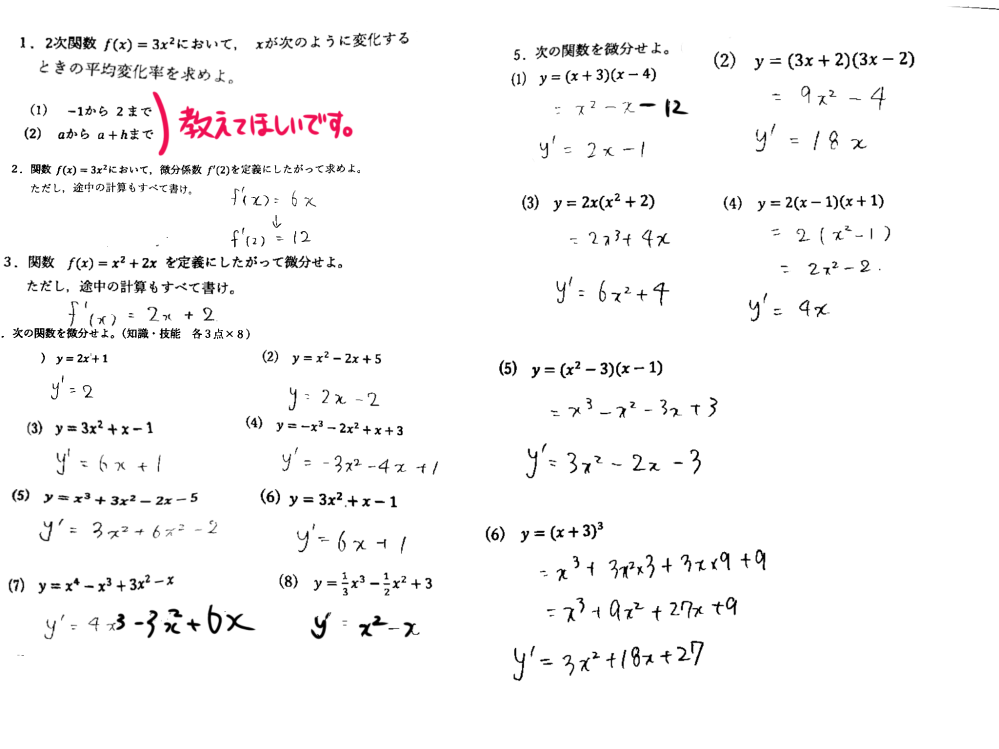 1．2次関数 f(x) = 3x²において， xが次のように変化する
ときの平均変化率を求めよ。
(1) -1から 2まで
(2) aから a + hまで
教えてほしいです。
2．関数 f(x) = 3x²において，微分係数 f'(2)を定義にしたがって求めよ。
ただし，途中の計算もすべて書け。
f'(x) = 6x
↓
f'(2) = 12
3．関数 f(x) = x² + 2x を定義にしたがって微分せよ。
ただし，途中の計算もすべて書け。
f'(x) = 2x + 2
．次の関数を微分せよ。（知識・技能 各３点×８）
) y = 2x + 1
y' = 2
(2) y = x² − 2x + 5
y = 2x − 2
(3) y = 3x² + x − 1
y' = 6x + 1
(4) y = −x³ − 2x² + x + 3
y' = −3x² − 4x + 1
(5) y = x³ + 3x² − 2x − 5
y' = 3x² + 6x² − 2
(6) y = 3x² + x − 1
y' = 6x + 1
(7) y = x⁴ − x³ + 3x² − x
y' = 4x³ − 3x² + 6x
(8) y = 1/3 x³ − 1/2 x² + 3
y' = x² − x
5．次の関数を微分せよ。
(1) y = (x + 3)(x − 4)
= x² − x − 12
y' = 2x − 1
(2) y = (3x + 2)(3x − 2)
= 9x² − 4
y' = 18x
(3) y = 2x(x² + 2)
= 2x³ + 4x
y' = 6x² + 4
(4) y = 2(x − 1)(x + 1)
= 2(x² − 1)
= 2x² − 2.
y' = 4x
(5) y = (x² − 3)(x − 1)
= x³ − x² − 3x + 3
y' = 3x² − 2x − 3
(6) y = (x + 3)³
= x³ + 3x²×3 + 3x×9 + 9
= x³ + 9x² + 27x + 9
y' = 3x² + 18x + 27